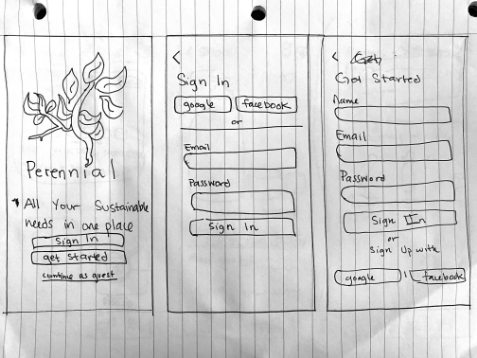 Perennial
All Your Sustainable
needs in one place
Sign In
get started
continue as guest
<
Sign In
google facebook
or
Email
Password
Sign In
<
Get Started
Name
Email
Password
Sign In
or
Sign Up with
google | facebook